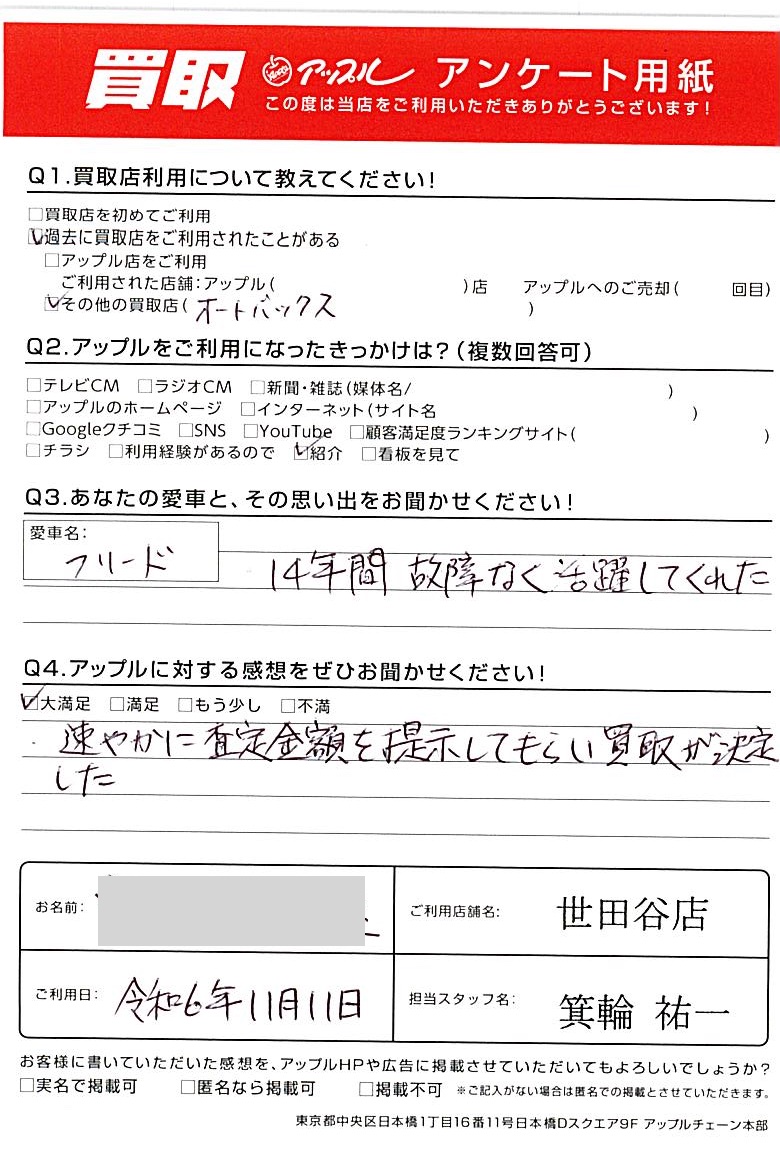 買取 アップル アンケート用紙
この度は当店をご利用いただきありがとうございます!
Q1.買取店利用について教えてください!
□買取店を初めてご利用
☑過去に買取店をご利用されたことがある
□アップル店をご利用
ご利用された店舗:アップル( )店 アップルへのご売却( 回目)
☑その他の買取店( オートバックス )
Q2.アップルをご利用になったきっかけは?(複数回答可)
□テレビCM □ラジオCM □新聞・雑誌(媒体名/ )
□アップルのホームページ □インターネット(サイト名 )
□Googleクチコミ □SNS □YouTube □顧客満足度ランキングサイト( )
□チラシ □利用経験があるので ☑紹介 □看板を見て
Q3.あなたの愛車と、その思い出をお聞かせください!
愛車名:
フリード 14年間 故障なく活躍してくれた
Q4.アップルに対する感想をぜひお聞かせください!
☑大満足 □満足 □もう少し □不満
速やかに査定金額を提示してもらい買取が決定
した
お名前: ご利用店舗名: 世田谷店
ご利用日: 令和6年11月11日 担当スタッフ名: 箕輪 祐一
お客様に書いていただいた感想を、アップルHPや広告に掲載させていただいてもよろしいでしょうか?
□実名で掲載可 □匿名なら掲載可 □掲載不可 ※ご記入がない場合は匿名での掲載とさせていただきます。
東京都中央区日本橋1丁目16番11号日本橋Dスクエア9F アップルチェーン本部